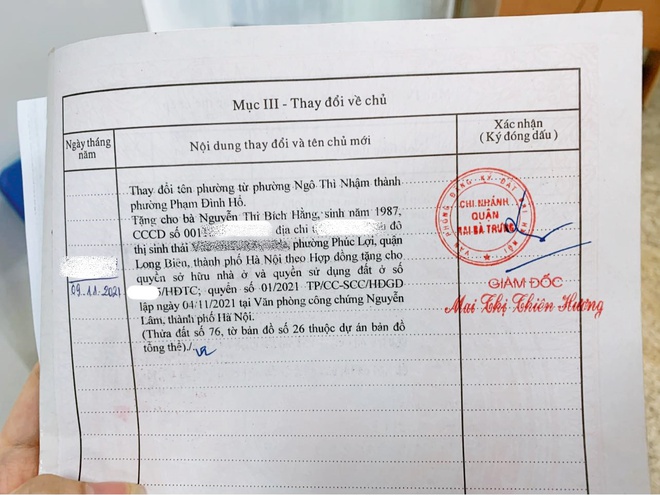 Mục III - Thay đổi về chủ
Ngày tháng năm
Nội dung thay đổi và tên chủ mới
Xác nhận
(Ký đóng dấu)
Thay đổi tên phường từ phường Ngô Thì Nhậm thành
phường Phạm Đình Hổ.
Tặng cho bà Nguyễn Thị Bích Hằng, sinh năm 1987,
CCCD số 001 địa chỉ đô
thị sinh thái phường Phúc Lợi, quận
Long Biên, thành phố Hà Nội theo Hợp đồng tặng cho
quyền sở hữu nhà ở và quyền sử dụng đất ở số
/HĐTC; quyển số 01/2021 TP/CC-SCC/HĐGD
lập ngày 04/11/2021 tại Văn phòng công chứng Nguyễn
Lâm, thành phố Hà Nội.
(Thửa đất số 76, tờ bản đồ số 26 thuộc dự án bản đồ
tổng thể)./.
09.11.2021
VĂN PHÒNG ĐĂNG KÝ ĐẤT ĐAI HÀ NỘI
CHI NHÁNH
QUẬN
HAI BÀ TRƯNG
GIÁM ĐỐC
Mai Thị Thiên Hương